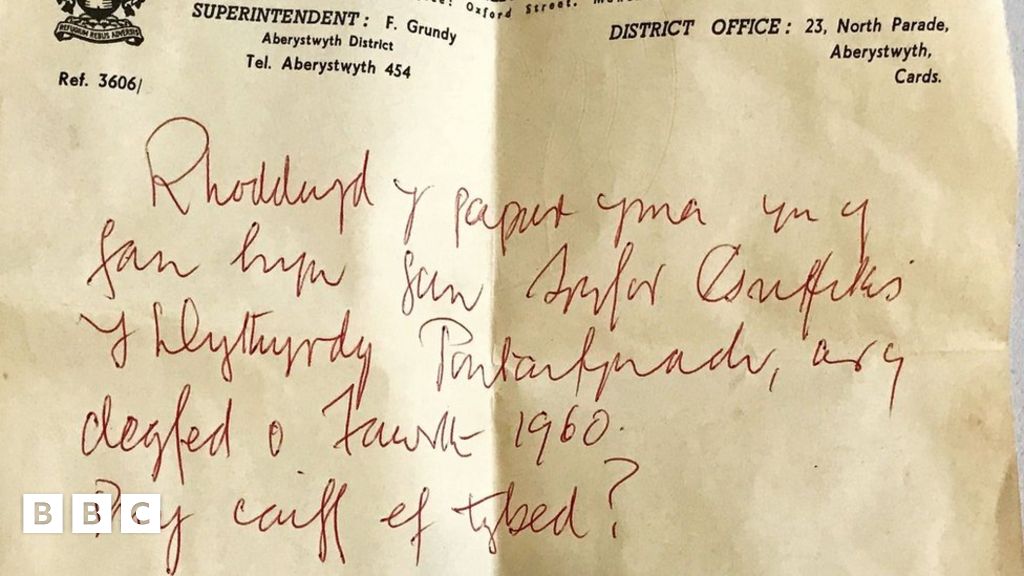 Oxford Street.
SUPERINTENDENT: F. Grundy
Aberystwyth District
Tel. Aberystwyth 454
Ref. 3606/
REFUGIUM REBUS ADVERSIS
DISTRICT OFFICE: 23, North Parade,
Aberystwyth,
Cards.
Rhoddwyd y papur yma yn y
fan hyn gan Griffiths
Y Llythyrdy Pontarfynach, ar y
degfed o Fawrth 1960.
Pwy caiff ef tybed?
BBC